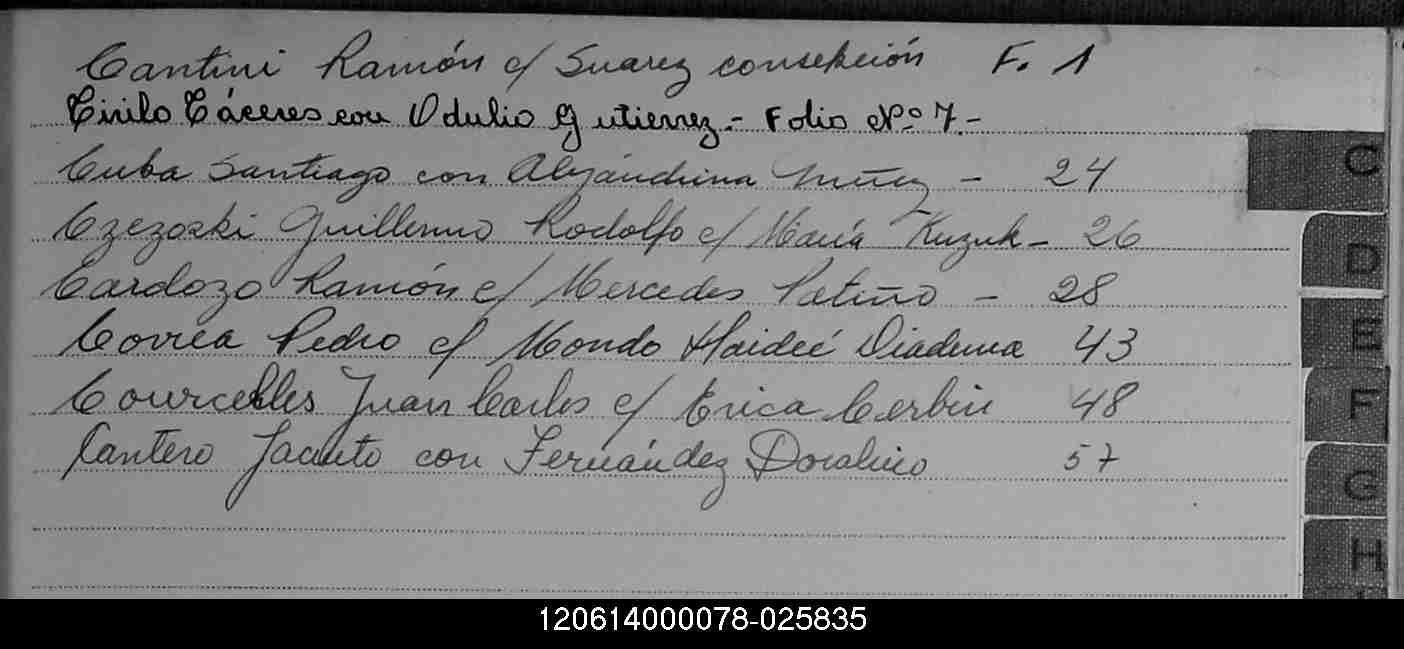 Cantini Ramón c/ Suarez consepción F. 1
Cirilo Cáceres con Odulio Gutierrez.- Folio Nº 7.-
Cuba Santiago con Alejandrina Núñez - 24
Czezoski Guillermo Rodolfo c/ María Kuzuk - 26
Cardozo Ramón c/ Mercedes Patiño - 28
Correa Pedro c/ Mondo Haideé Diadema 43
Courcelles Juan Carlos c/ Erica Cerbin 48
Cantero Jacinto con Fernández Doralino 57
C
D
E
F
G
H
120614000078-025835